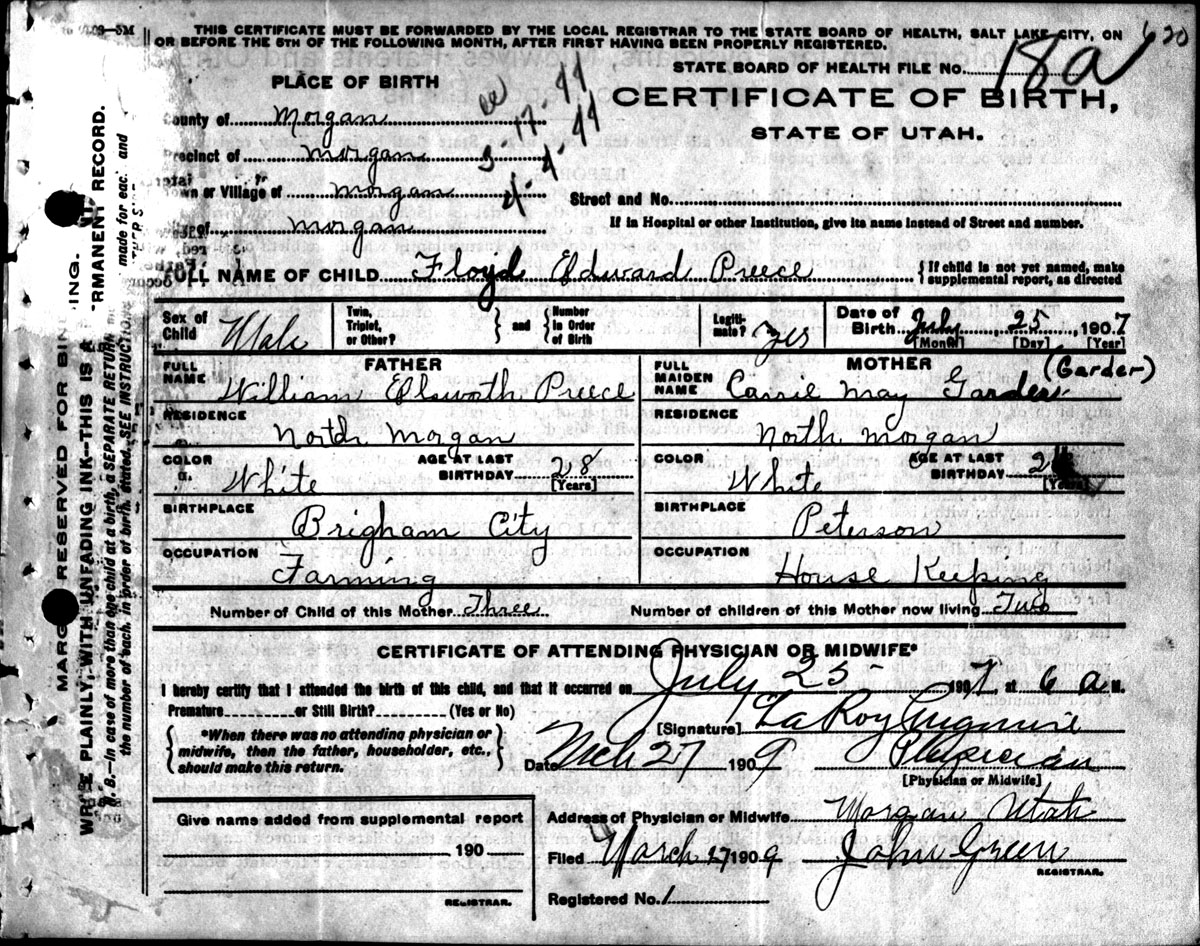 09–5M
THIS CERTIFICATE MUST BE FORWARDED BY THE LOCAL REGISTRAR TO THE STATE BOARD OF HEALTH, SALT LAKE CITY, ON
OR BEFORE THE 5TH OF THE FOLLOWING MONTH, AFTER FIRST HAVING BEEN PROPERLY REGISTERED.
620
STATE BOARD OF HEALTH FILE No. 18a
PLACE OF BIRTH
CERTIFICATE OF BIRTH,
STATE OF UTAH.
County of Morgan
Precinct of Morgan
Town or Village of Morgan
of Morgan
3-17-44
4-4-44
Street and No.
If in Hospital or other Institution, give its name instead of Street and number.
FULL NAME OF CHILD Floyd Edward Preece
{If child is not yet named, make
supplemental report, as directed
Sex of Child Male
Twin, Triplet, or Other?
and
Number in Order of Birth
Legitimate? Yes
Date of Birth July 25, 1907
[Month] [Day] [Year]
FATHER
FULL NAME William Elsworth Preece
MOTHER
FULL MAIDEN NAME Carrie May Garder
(Garder)
RESIDENCE North Morgan
RESIDENCE North Morgan
COLOR White AGE AT LAST BIRTHDAY 28 [Years]
COLOR White AGE AT LAST BIRTHDAY [Years]
BIRTHPLACE Brigham City
BIRTHPLACE Peterson
OCCUPATION Farming
OCCUPATION House Keeping
Number of Child of this Mother Three
Number of children of this Mother now living Two
CERTIFICATE OF ATTENDING PHYSICIAN OR MIDWIFE*
I hereby certify that I attended the birth of this child, and that it occurred on July 25 1907, at 6 a M.
Premature or Still Birth? (Yes or No)
[Signature] LaRoy
*When there was no attending physician or
midwife, then the father, householder, etc.,
should make this return.
Date Mch 27 1909
Physician
[Physician or Midwife]
Give name added from supplemental report
190
REGISTRAR.
Address of Physician or Midwife Morgan Utah
Filed March 27 1909 John Green
REGISTRAR.
Registered No. 1
MARGIN RESERVED FOR BINDING.
WRITE PLAINLY, WITH UNFADING INK—THIS IS A PERMANENT RECORD.
N. B.—In case of more than one child at a birth, a SEPARATE RETURN must be made for each, and
the number of each, in order of birth, stated. SEE INSTRUCTIONS